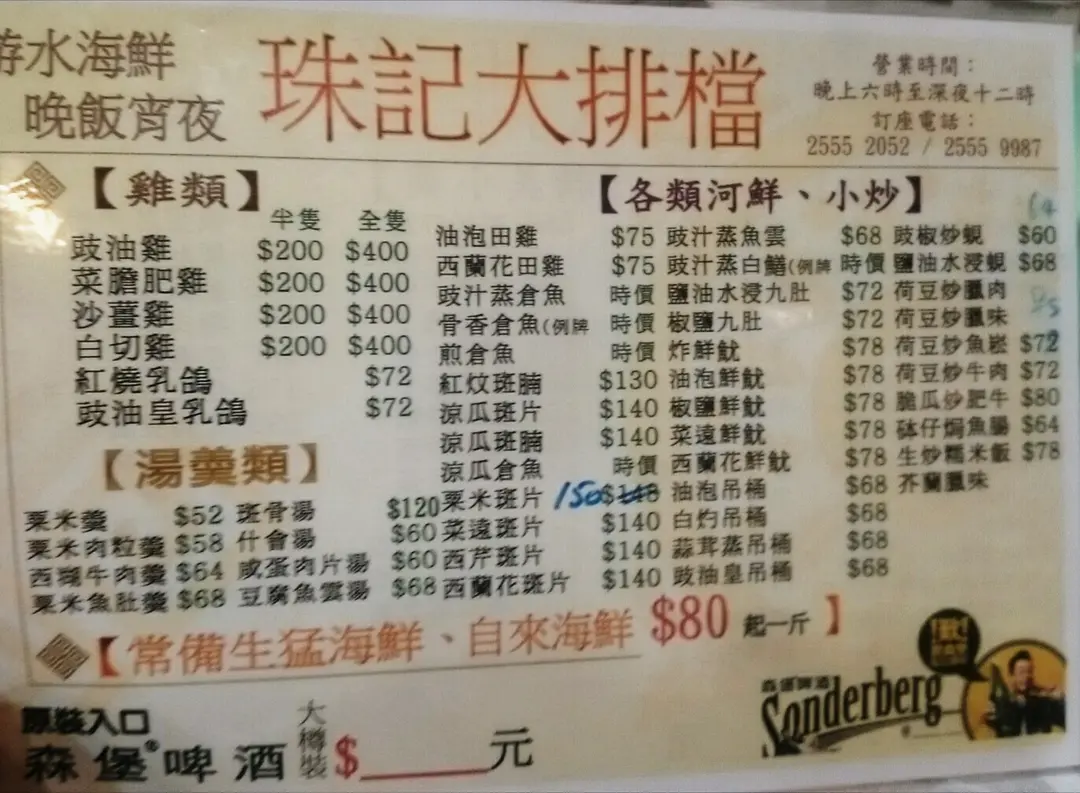 游水海鮮
晚飯宵夜
珠記大排檔
營業時間：
晚上六時至深夜十二時
訂座電話：
2555 2052 / 2555 9987
【雞類】
半隻 全隻
豉油雞 $200 $400
菜膽肥雞 $200 $400
沙薑雞 $200 $400
白切雞 $200 $400
紅燒乳鴿 $72
豉油皇乳鴿 $72
【湯羹類】
粟米羹 $52
粟米肉粒羹 $58
西湖牛肉羹 $64
粟米魚肚羹 $68
斑骨湯 $120
什會湯 $60
咸蛋肉片湯 $60
豆腐魚雲湯 $68
【各類河鮮、小炒】
油泡田雞 $75
西蘭花田雞 $75
豉汁蒸倉魚 時價
骨香倉魚(例牌 時價
煎倉魚 時價
紅炆斑腩 $130
涼瓜斑片 $140
涼瓜斑腩 $140
涼瓜倉魚 時價
粟米斑片 150
菜遠斑片 $140
西芹斑片 $140
西蘭花斑片 $140
豉汁蒸魚雲 $68
豉汁蒸白鱔(例牌 時價
鹽油水浸九肚 $72
椒鹽九肚 $72
炸鮮魷 $78
油泡鮮魷 $78
椒鹽鮮魷 $78
菜遠鮮魷 $78
西蘭花鮮魷 $78
油泡吊桶 $68
白灼吊桶 $68
蒜茸蒸吊桶 $68
豉油皇吊桶 $68
豉椒炒蜆 $60
鹽油水浸蜆 $68
荷豆炒臘肉
荷豆炒臘味
荷豆炒魚崧 $72
荷豆炒牛肉 $72
脆瓜炒肥牛 $80
砵仔焗魚腸 $64
生炒糯米飯 $78
芥蘭臘味
【常備生猛海鮮、自來海鮮 $80 起一斤】
原裝入口
森堡®啤酒
大樽裝
$______元
森堡啤酒
Sonderberg